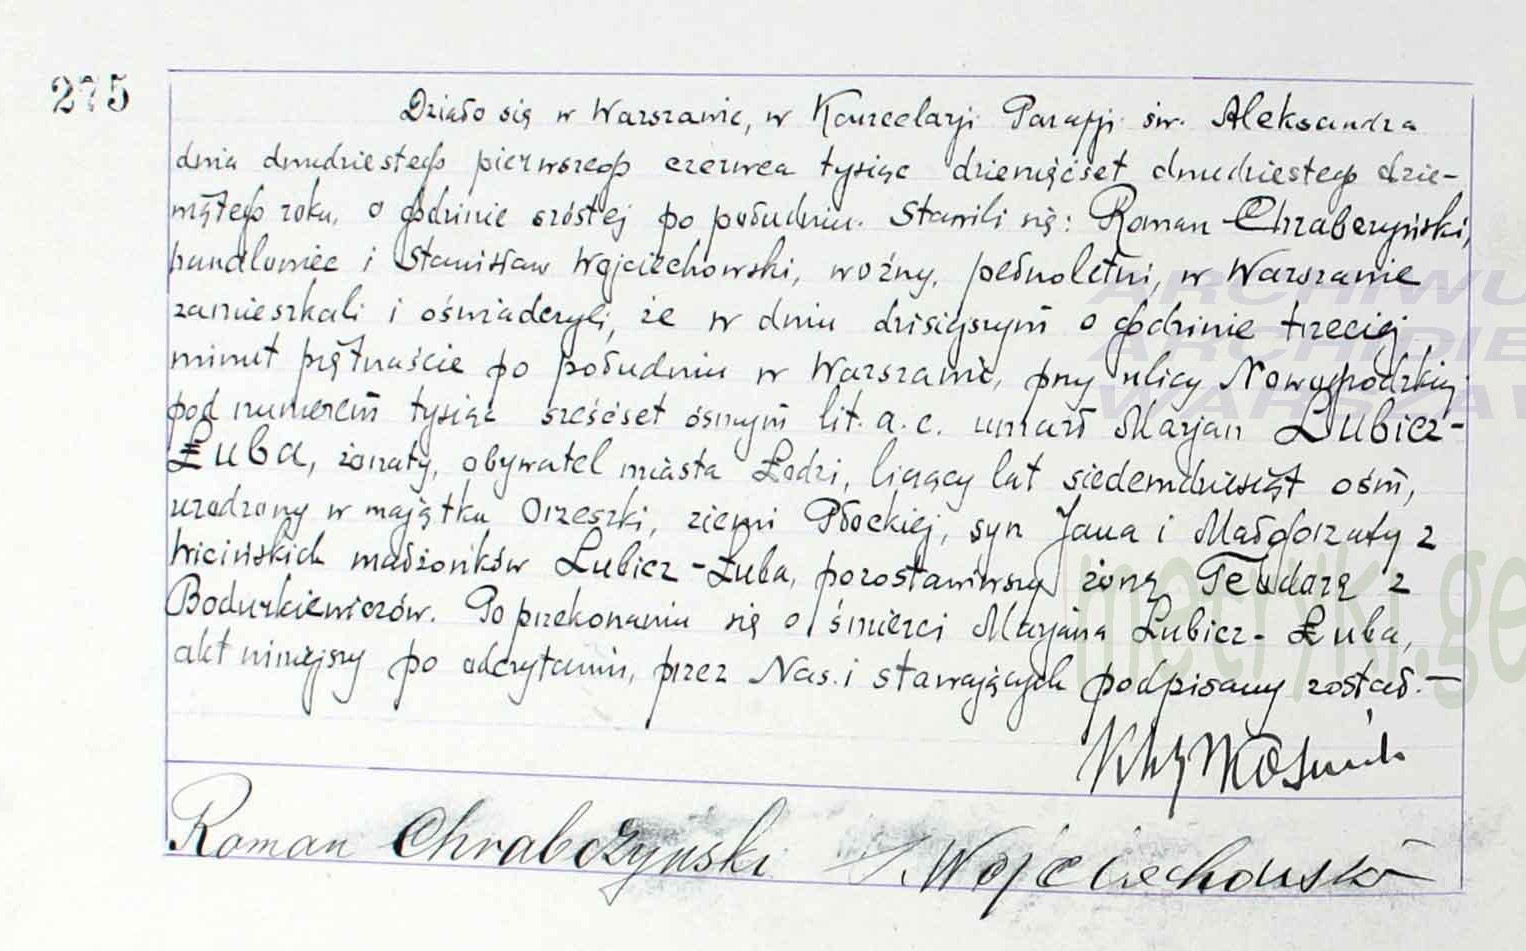 275
Działo się w Warszawie, w Kancelarji Parafji św. Aleksandra
dnia dwudziestego pierwszego czerwca tysiąc dziewięćset dwudziestego dzie-
wiątego roku, o godzinie szóstej po południu. Stawili się: Roman Chrabczyński,
handlowiec i Stanisław Wojciechowski, woźny, pełnoletni, w Warszawie
zamieszkali i oświadczyli, że w dniu dzisiejszym o godzinie trzeciej
minut piętnaście po południu w Warszawie, przy ulicy Nowogrodzkiej
pod numerem tysiąc sześćset ósmym lit. a. c. umarł Marjan Lubicz-
Łuba, żonaty, obywatel miasta Łodzi, liczący lat siedemdziesiąt ośm,
urodzony w majątku Orzeszki, ziemi Płockiej, syn Jana i Małgorzaty z
Wicińskich małżonków Lubicz-Łuba, pozostawiwszy żonę Teodarę z
Bodurkiewiczów. Po przekonaniu się o śmierci Marjana Lubicz-Łuba,
akt niniejszy po odczytaniu, przez Nas i stawających podpisany został.—
Roman Chrabczyński S Wojciechowski
ARCHIWU
ARCHIDIE
WARSZAW
metryki.ge